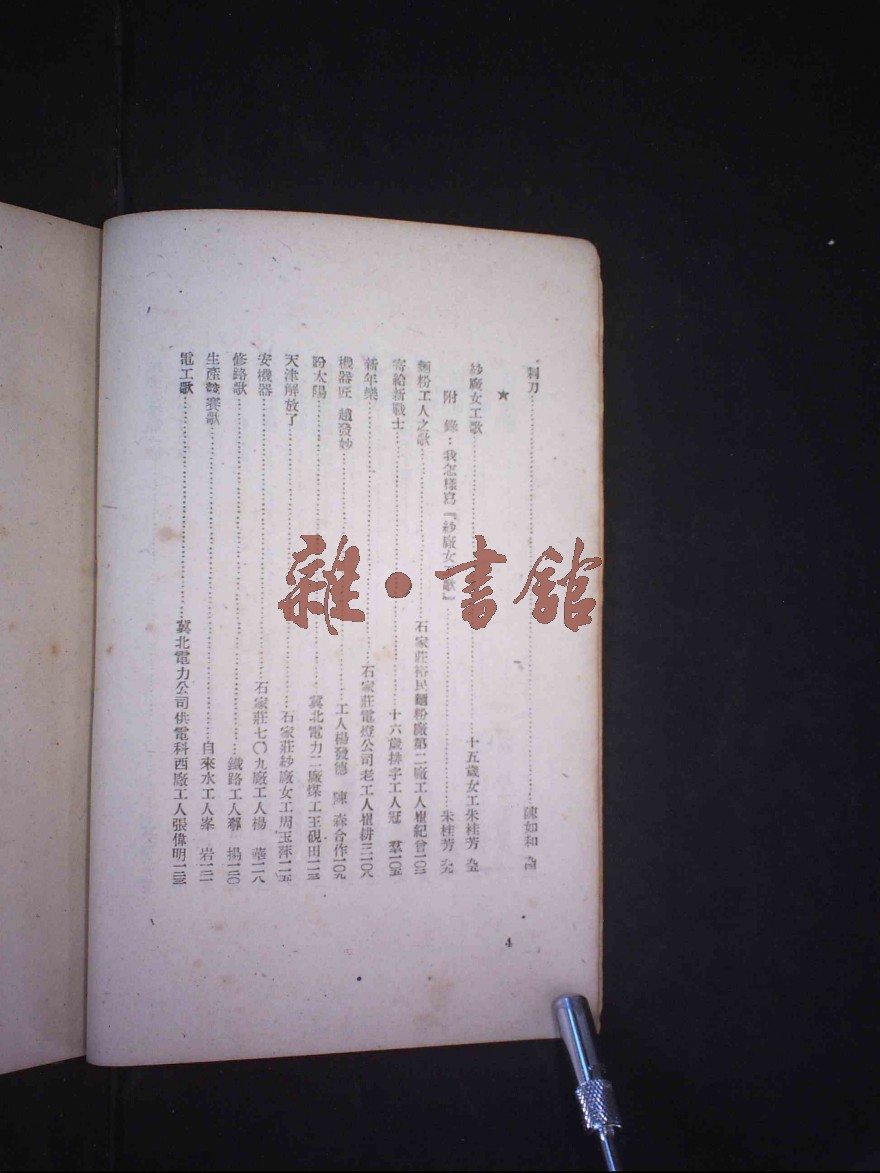 利刀……陳如和 九四
★
紗廠女工歌……十五歲女工朱桂芳 九五
附 錄：我怎樣寫『紗廠女工歌』……朱桂芳 九九
麵粉工人之歌……石家莊裕民麵粉廠第二廠工人崔紀曾一〇三
寄給新戰士……十六歲排字工人冠 羣一〇五
新年樂……石家莊電燈公司老工人崔耕三一〇八
機器匠 趙發妙……工人楊發德 陳 森合作一〇九
盼太陽……冀北電力二廠煤工王硯田一一三
天津解放了……石家莊紗廠女工周玉萍一一五
安機器……石家莊七〇九廠工人楊 華一一八
修路歌……鐵路工人 揚一二〇
生產競賽歌……自來水工人峯 岩一二一
電工歌……冀北電力公司供電科西廠工人張偉明一二三
4
雜·書館